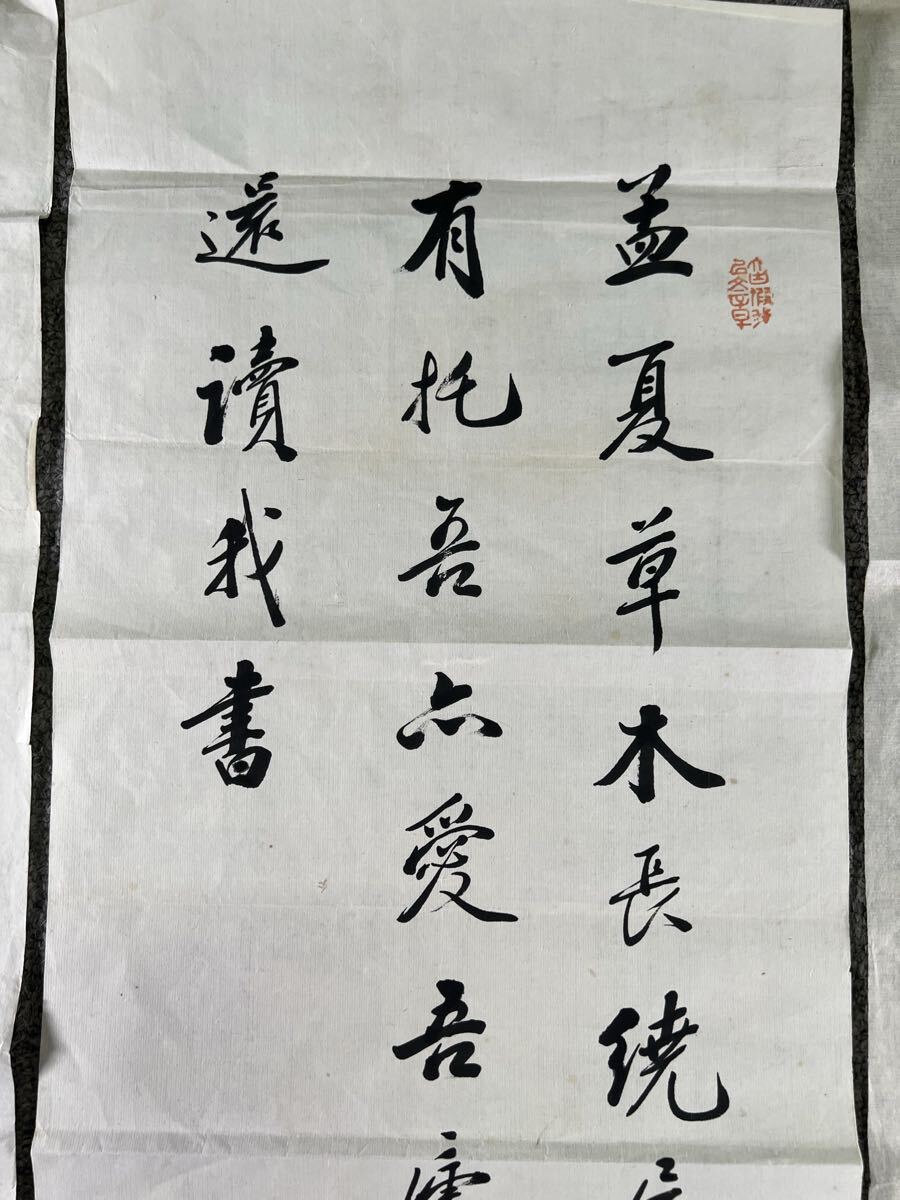 孟夏草木長繞
有托吾亦愛吾廬
還讀我書